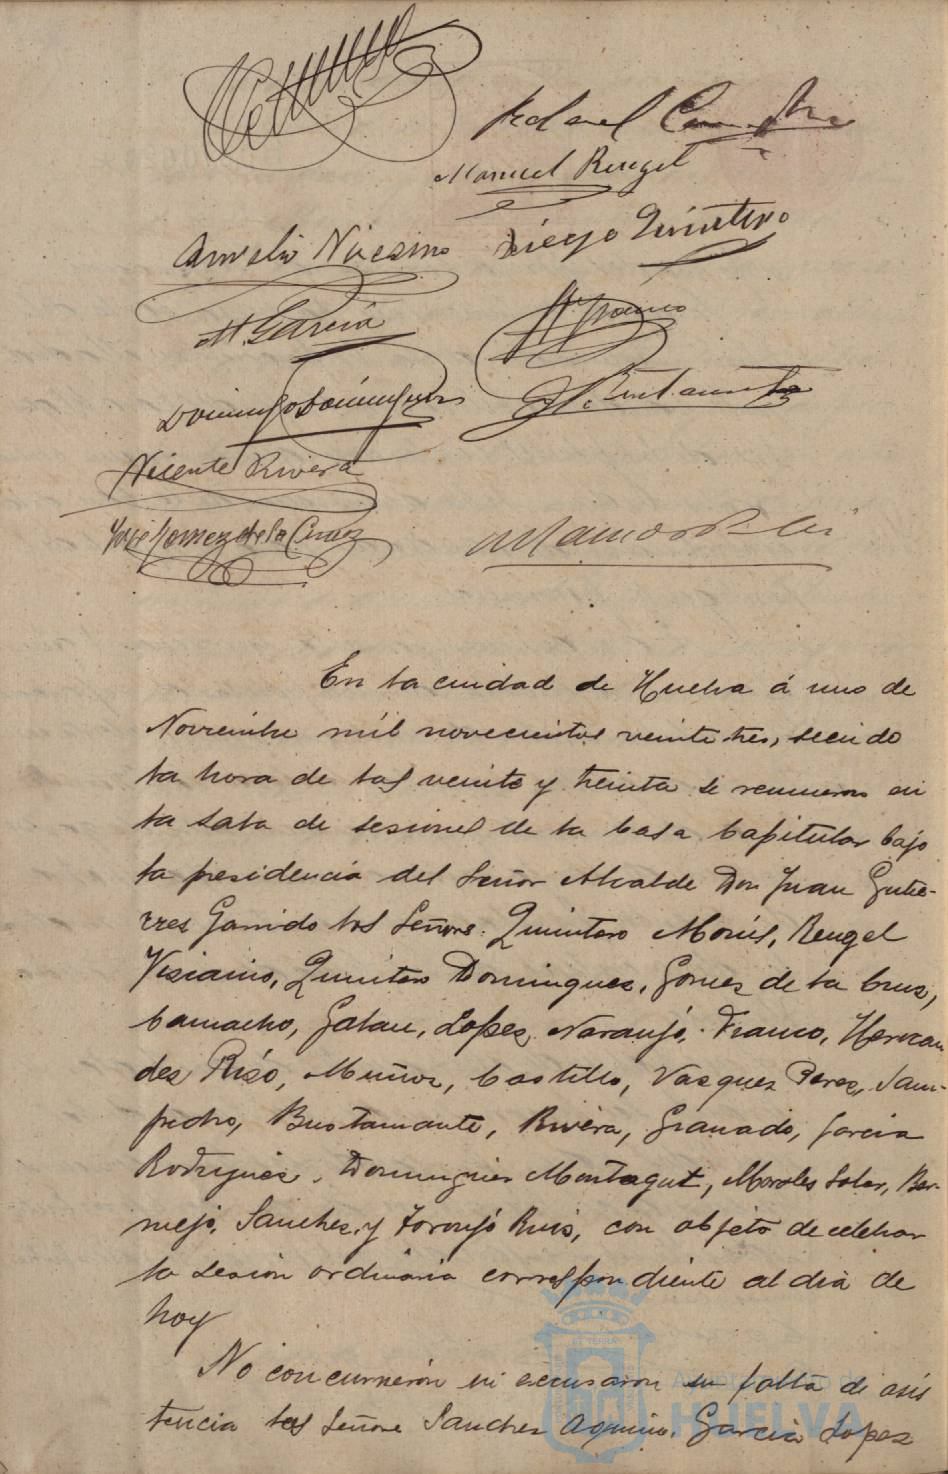 Manuel Rengel
Aurelio Diego Quintero
M. García
Domingo Dominguez Bustamante
Vicente Rivera
José Gomez de la Cruz
En la ciudad de Huelva á uno de
Noviembre mil novecientos veinte tres, siendo
la hora de las veinte y treinta se reunieron en
la sala de sesiones de la Casa Capitular bajo
la presidencia del Señor Alcalde Don Juan Gutie-
rres Garrido los Señores Quintero Rengel
Visiaino, Quintero Domingues, Gomes de la Crus,
Camacho, Galan, Lopes Naranjo, Franco, Hernan
des Riso, Muños, Castillo, Vasques Peres, Sam-
pedro, Bustamante, Rivera, Granado, Garcia
Rodrigues, Domingues Montagut, Morales Soler, Ber-
mejo, Sanches y Toronjo Ruis, con objeto de celebrar
la sesion ordinaria correspondiente al dia de
hoy
No concurrieron ni escusaron su falta de asis
tencia los Señores Sanches Aquino, Garcia Lopes
HUELVA